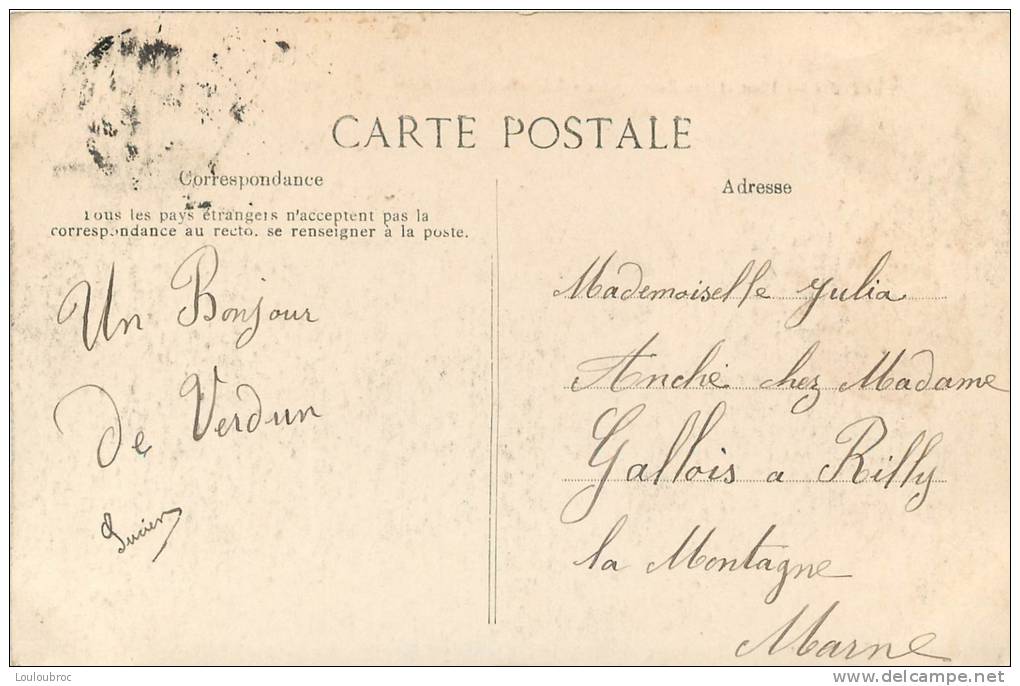 CARTE POSTALE
Correspondance
Tous les pays étrangers n'acceptent pas la
correspondance au recto. se renseigner à la poste.
Un Bonjour
de Verdun
Lucien
Adresse
Mademoiselle Julia
Anché chez Madame
Gallois a Rilly
la Montagne
Marne
Louloubroc
www.delcampe.net